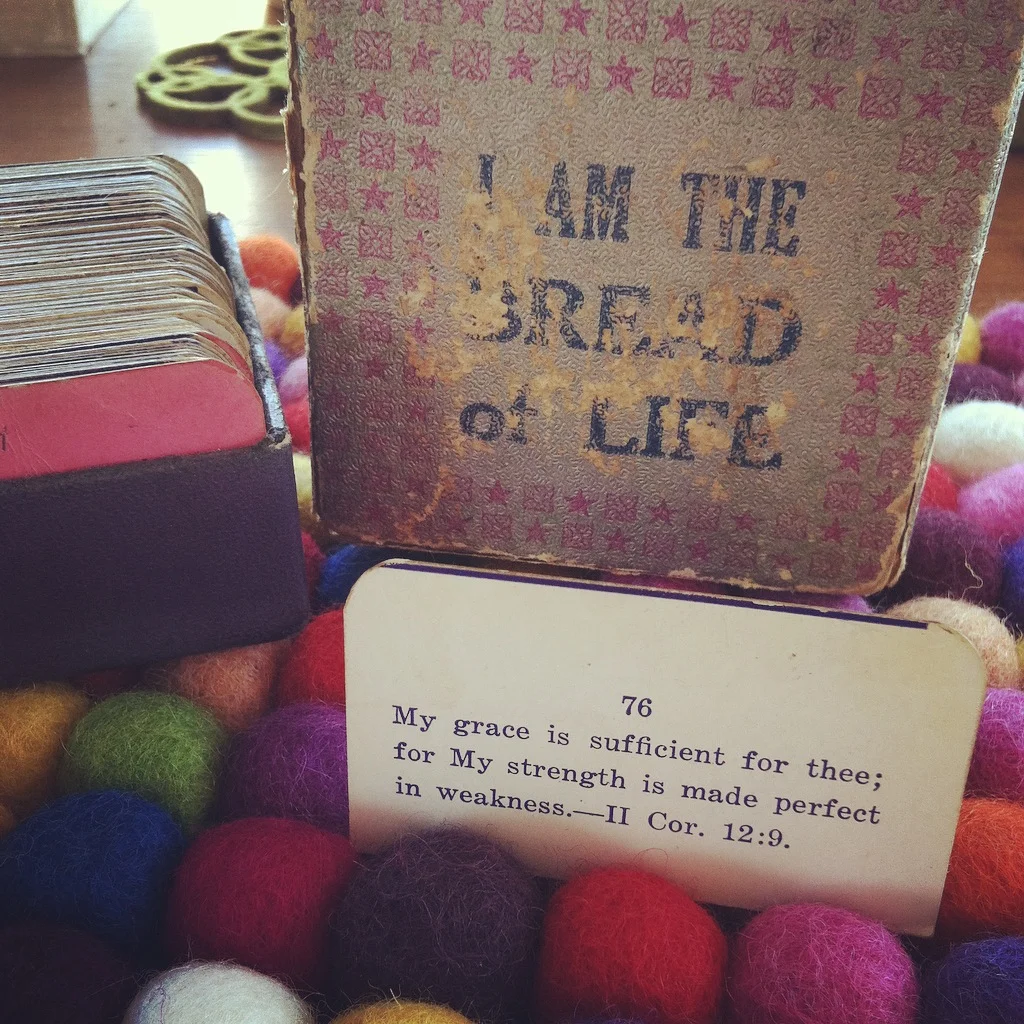 I AM THE
BREAD
of LIFE
76
My grace is sufficient for thee;
for My strength is made perfect
in weakness.—II Cor. 12:9.